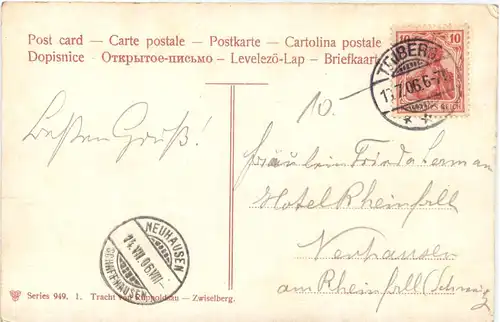 Post card – Carte postale – Postkarte – Cartolina postale
Dopisnice – Открытое-письмо – Levelező-Lap – Briefkaart
10 10
13.7.06.6-7
* *
10.-
Besten Gruß!
Fräulein Frieda Lerman
Hotel Rheinfall
Neuhausen
am Rheinfall (Schweiz
NEUHAUSEN
14.VII.06.VIII–
(SCHAFFHAUSEN)
Series 949. 1. Tracht von Rippoldsau – Zwiselberg.